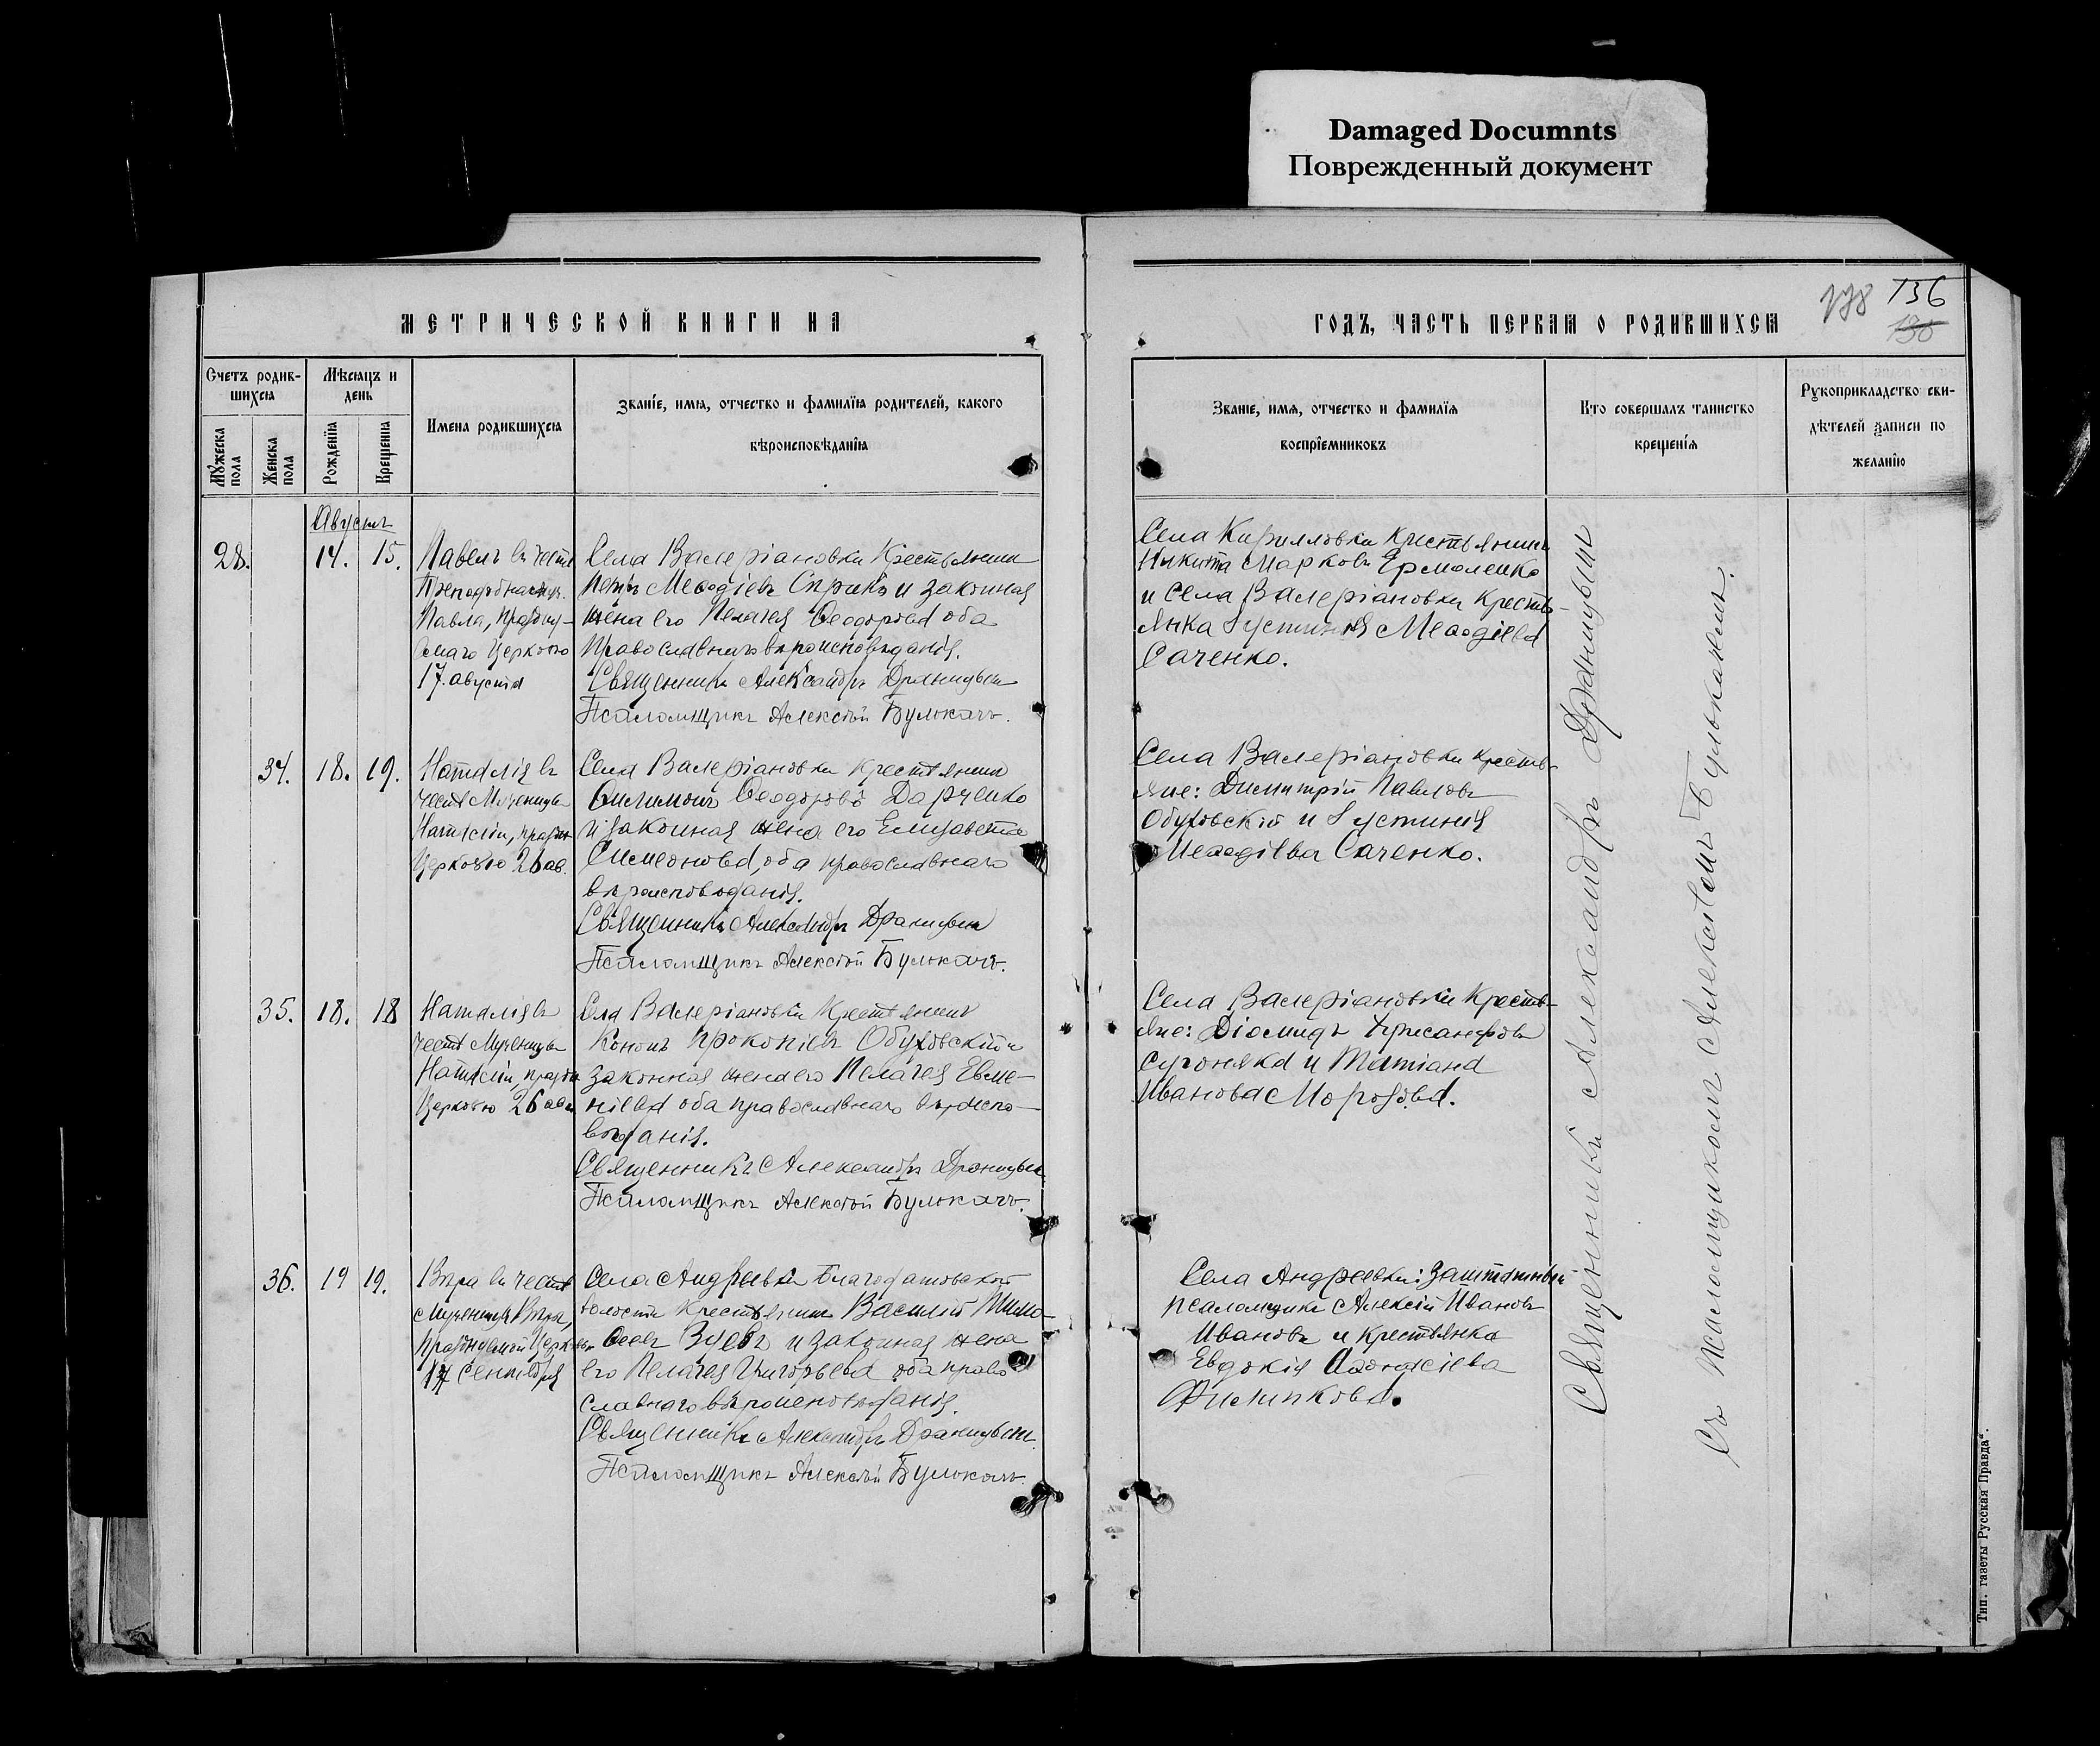 Damaged Documnts
Поврежденный документ
МЕТРИЧЕСКОЙ КНИГИ НА
ГОДЪ, ЧАСТЬ ПЕРВАЯ О РОДИВШИХСЯ
138
136
130
Счетъ родив-
шихся
Мѣсяцъ и
день
Мужеска
пола
Женска
пола
Рожденїя
Крещенія
Имена родившихся
Званїе, имя, отчество и фамилїя родителей, какого
вѣроисповѣданїя
Званїе, имя, отчество и фамилїя
воспрїемниковъ
Кто совершалъ таинство
крещенїя
Рукоприкладство сви-
дѣтелей записи по
желанїю
Августъ
28.
14. 15.
Павелъ въ честь
Павла,
Церковю
17. августа
Села Валеріановки Крестьянинъ
Петръ Меѳодіевъ и законная
жена его Пелагея Ѳеодорова оба
Православнаго вѣроисповѣданія.
Священникъ Александръ Драницынъ
Псаломщикъ Алексѣй Булюкачъ.
Села Кирилловки Крестьянинъ
Никита Марковъ Ермоленко
и Села Валеріановки Кресть-
янка Іустинія Меѳодіева
Саченко.
34. 18. 19.
Наталія въ
честь Мученицы
Наталіи, праздн
Церковю 26 ав.
Села Валеріановки крестьянинъ
Филимонъ Ѳеодоровъ Дарченко
и законная жена его Елизавета
Симеонова, оба православнаго
вѣроисповѣданія.
Священникъ Александръ Драницынъ
Псаломщикъ Алексѣй Булюкачъ.
Села Валеріановки кресть-
яне: Димитрій Павловъ
Обуховскій и Іустинія
Меѳодіева Саченко.
35. 18. 18
Наталія въ
честь Мученицы
Наталіи, праздн
Церковю 26 авг
Села Валеріановки Крестьянинъ
Кононъ Прокопіевъ Обуховскій и
законная жена его Пелагея Евме-
ніева оба православнаго вѣроиспо-
вѣданія.
Священникъ Александръ Драницынъ
Псаломщикъ Алексѣй Булюкачъ.
Села Валеріановки Кресть-
яне: Діомидъ Хрисанфовъ
Сугоняка и Татіана
Иванова Морозова.
36. 19 19.
Вѣра въ честь
Мученицы Вѣры,
празднуемой Церковю
17 Сентября
Села Андреевки Благодатовской
волости Крестьянинъ Василій Тимо-
ѳеевъ Зуевъ и законная жена
его Пелагея Григорьева оба право
славнаго вѣроисповѣданія.
Священникъ Александръ Драницынъ.
Псаломщикъ Алексѣй Булюкачъ.
Села Андреевки: Заштатный
псаломщикъ Алексій Ивановъ
Ивановъ и крестьянка
Евдокія Аѳанасіева
Филипкова.
Священникъ Александръ Драницынъ
Съ Псаломщикомъ Алексѣемъ Булюкачемъ.
Тип. газеты „Русская Правда“.